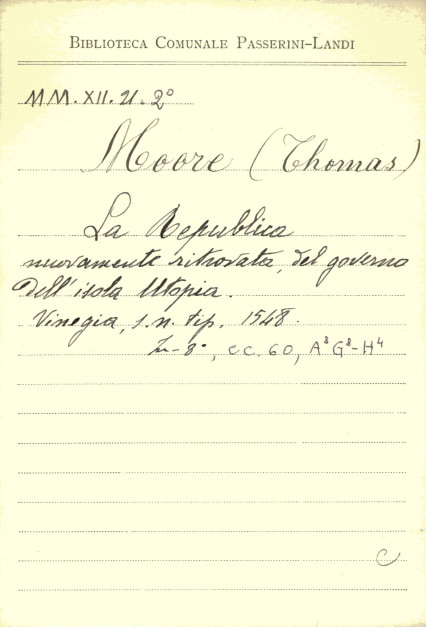 BIBLIOTECA COMUNALE PASSERINI-LANDI
MM. XII. 21. 2°
Moore (Thomas)
La Republica
nuovamente ritrovata, del governo
dell'isola Utopia.
Vinegia, s.n. tip. 1548.
In-8°, cc. 60, A⁸ G⁸-H⁴
C